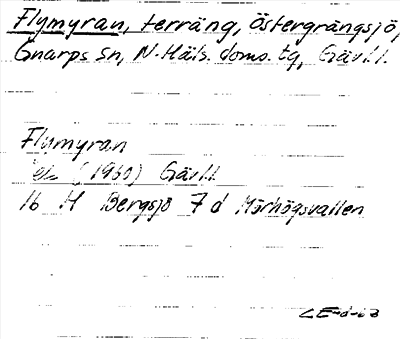 Flymyran, terräng, Östergrängsjö,
Gnarps sn, N. Häls. doms. tg, Gävl.l.
Flymyran
ek (1960) Gävl.l
16 H Bergsjö 7 d Mörhögsvallen